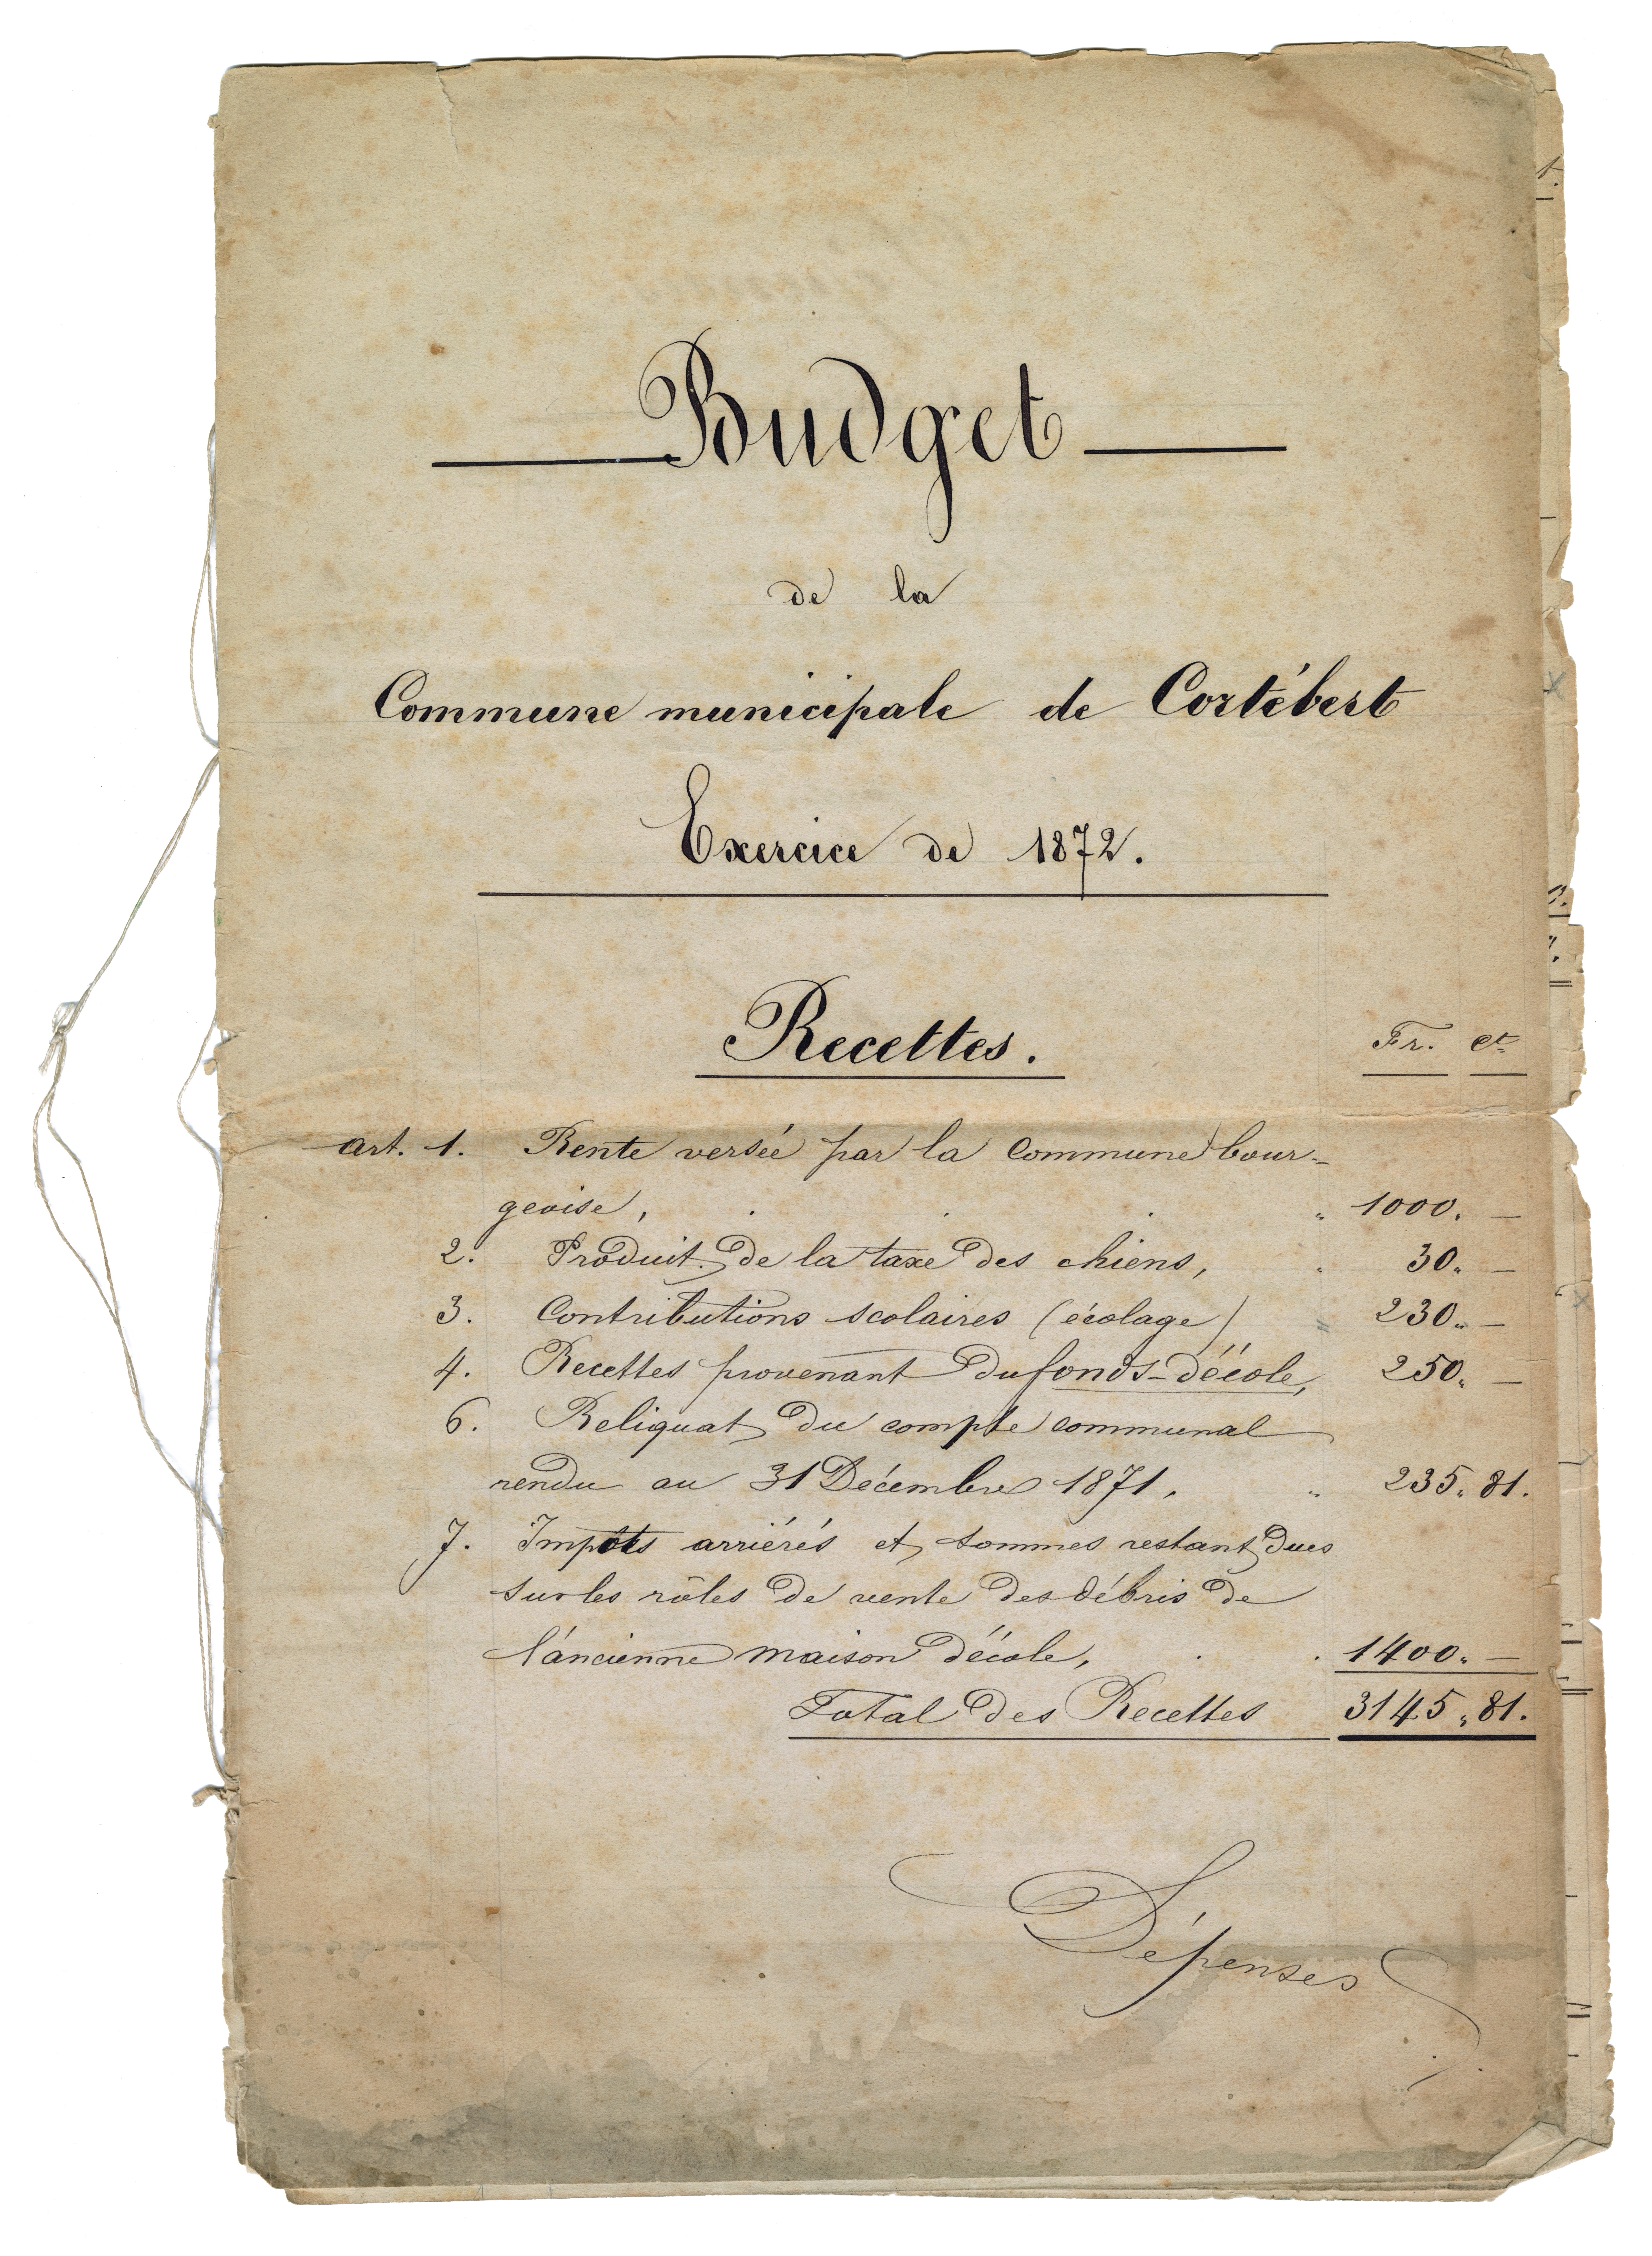 Budget
de la
Commune municipale de Cortébert
Exercice de 1872.
Recettes.
Fr. ct
art. 1. Rente versée par la commune bour-
geoise, . . . " 1000. —
2. Produit de la taxe des chiens, " 30. —
3. Contributions scolaires (écolage) " 230. —
4. Recettes provenant du fonds-d'école, 250. —
6. Reliquat du compte communal
rendu au 31 Décembre 1871. " 235. 81.
7. Impôts arriérés et sommes restant dues
sur les rôles de vente des débris de
l'ancienne maison d'école, . . 1400. —
Total des Recettes 3145. 81.
Dépenses